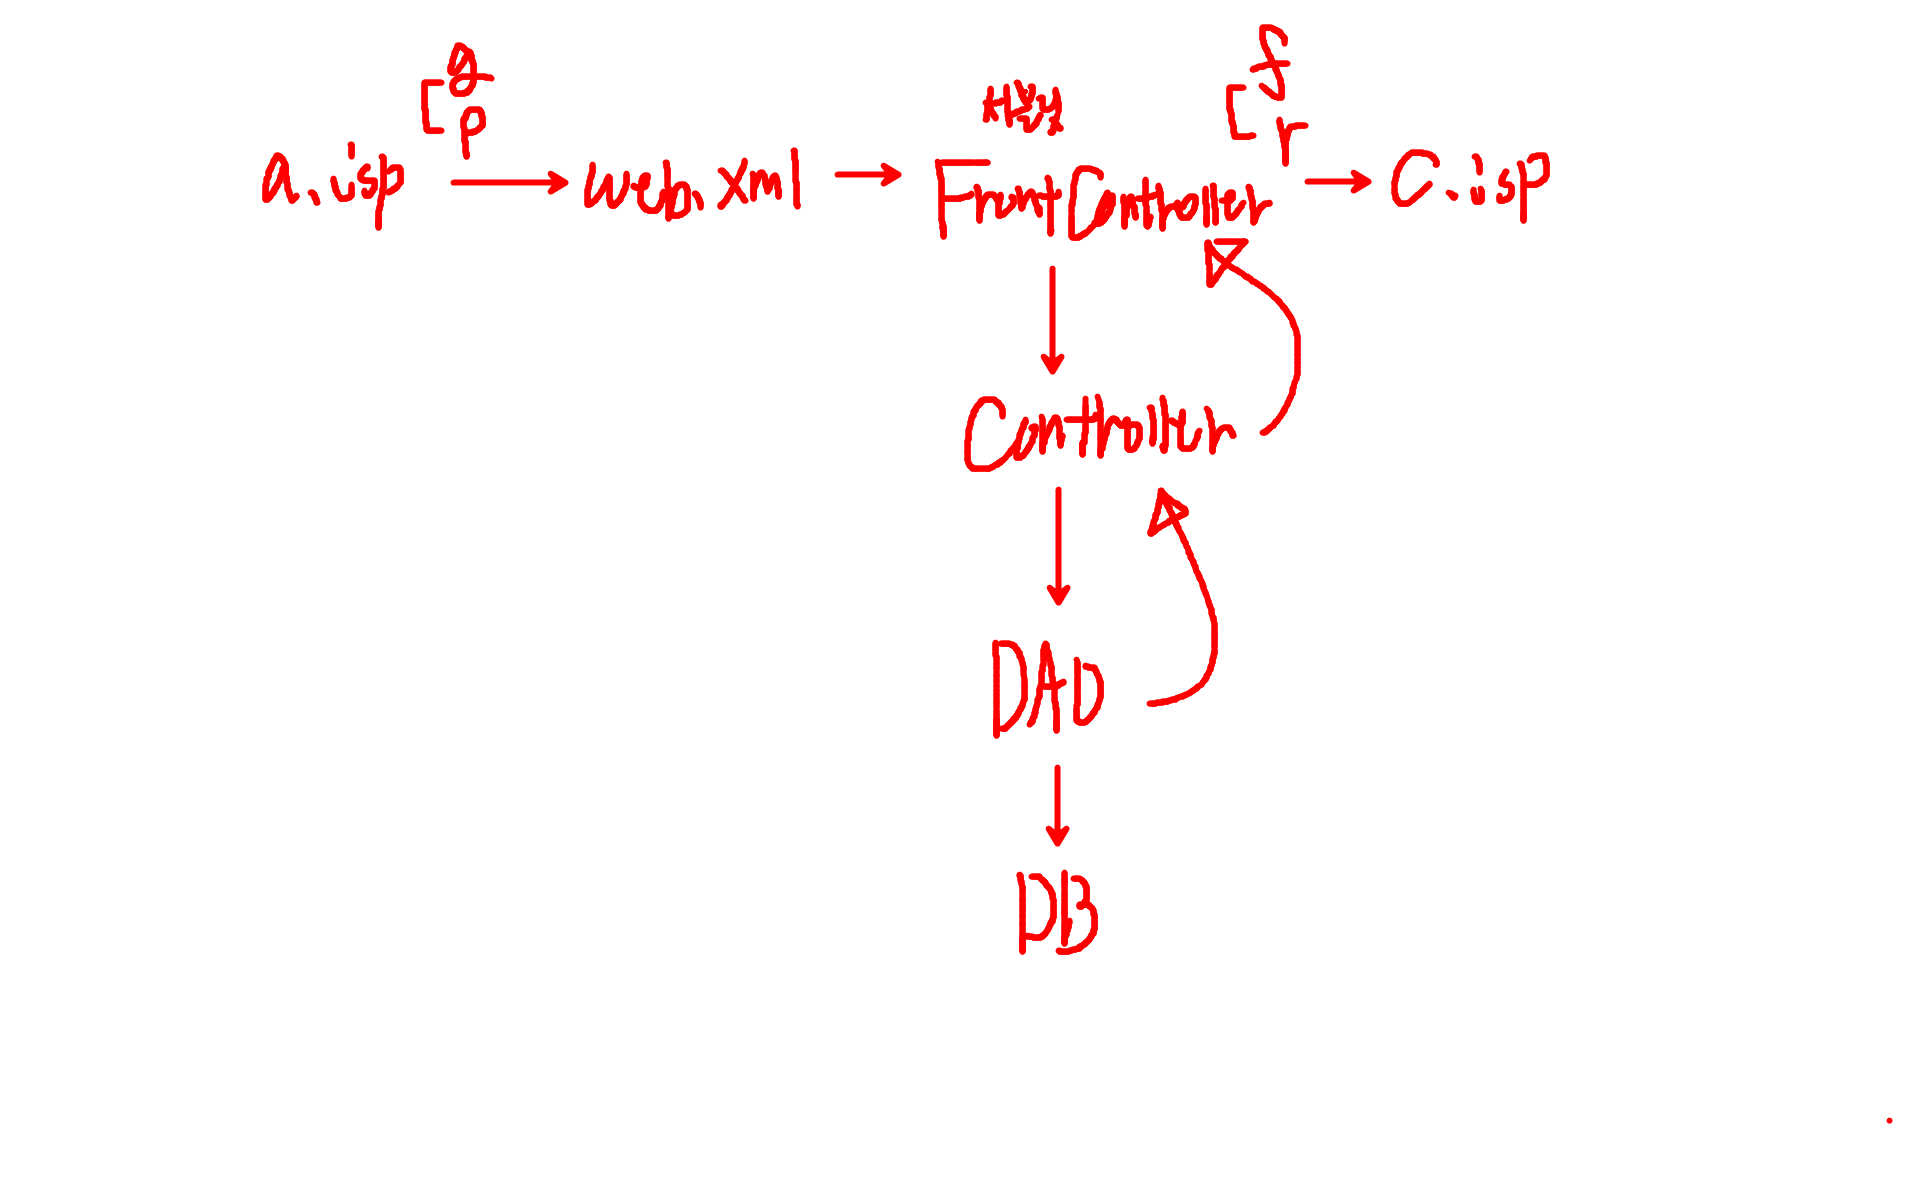 [g
p
[f
r
a.jsp → web.xml → FrontController → C.jsp
Controller
DAO
DB